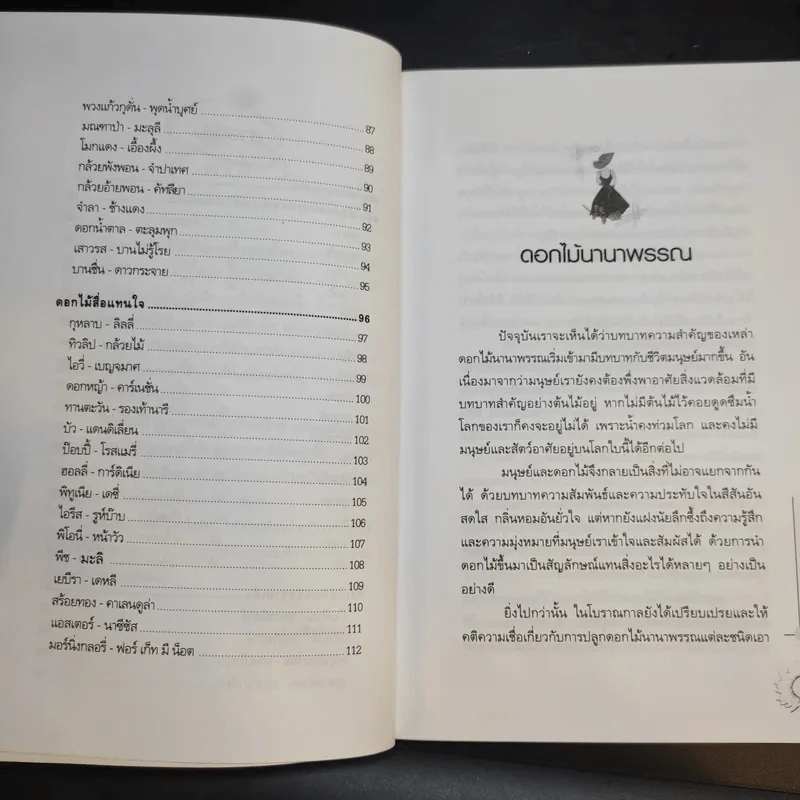 พวงแก้วกุดั่น - พุดน้ำบุศย์ ........ 87
มณฑาป่า - มะลุลี ........ 88
โมกแดง - เอื้องผึ้ง ........ 89
กล้วยพังพอน - จำปาเทศ ........ 90
กล้วยอ้ายพอน - คัทลียา ........ 91
จำลา - ช้างแดง ........ 92
ดอกน้ำตาล - ตะลุมพุก ........ 93
เสาวรส - บานไม่รู้โรย ........ 94
บานชื่น - ดาวกระจาย ........ 95
ดอกไม้สื่อแทนใจ ........ 96
กุหลาบ - ลิลลี่ ........ 97
ทิวลิป - กล้วยไม้ ........ 98
ไอวี่ - เบญจมาศ ........ 99
ดอกหญ้า - คาร์เนชั่น ........ 100
ทานตะวัน - รองเท้านารี ........ 101
บัว - แดนดิเลี่ยน ........ 102
ป๊อบปี้ - โรสแมรี่ ........ 103
ฮอลลี่ - การ์ดิเนีย ........ 104
พิทูเนีย - เดซี่ ........ 105
ไอรีส - รูห์บ๊าบ ........ 106
พีโอนี่ - หน้าวัว ........ 107
พีช - มะลิ ........ 108
เยบีรา - เดหลี ........ 109
สร้อยทอง - คาเลนดูล่า ........ 110
แอสเตอร์ - นาซีซัส ........ 111
มอร์นิ่งกลอรี่ - ฟอร์ เก็ท มี น็อต ........ 112
ดอกไม้นานาพรรณ
ปัจจุบันเราจะเห็นได้ว่าบทบาทความสำคัญของเหล่า
ดอกไม้นานาพรรณเริ่มเข้ามามีบทบาทกับชีวิตมนุษย์มากขึ้น อัน
เนื่องมาจากว่ามนุษย์เรายังคงต้องพึ่งพาอาศัยสิ่งแวดล้อมที่มี
บทบาทสำคัญอย่างต้นไม้อยู่ หากไม่มีต้นไม้ไว้คอยดูดซึมน้ำ
โลกของเราก็คงจะอยู่ไม่ได้ เพราะน้ำคงท่วมโลก และคงไม่มี
มนุษย์และสัตว์อาศัยอยู่บนโลกใบนี้ได้อีกต่อไป
มนุษย์และดอกไม้จึงกลายเป็นสิ่งที่ไม่อาจแยกจากกัน
ได้ ด้วยบทบาทความสัมพันธ์และความประทับใจในสีสันอัน
สดใส กลิ่นหอมอันยั่วใจ แต่หากยังแฝงนัยลึกซึ้งถึงความรู้สึก
และความมุ่งหมายที่มนุษย์เราเข้าใจและสัมผัสได้ ด้วยการนำ
ดอกไม้ขึ้นมาเป็นสัญลักษณ์แทนสิ่งอะไรได้หลายๆ อย่างเป็น
อย่างดี
ยิ่งไปกว่านั้น ในโบราณกาลยังได้เปรียบเปรยและให้
คติความเชื่อเกี่ยวกับการปลูกดอกไม้นานาพรรณแต่ละชนิดเอา